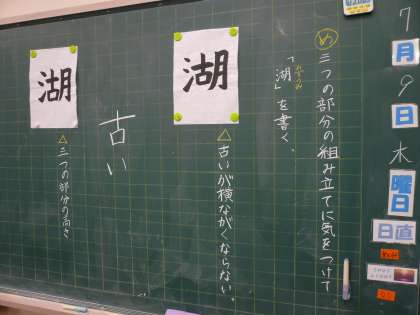 7
月
9
日
木
曜日
日直
め 三つの部分の組み立てに気をつけて
「湖」を書く。
みずうみ
湖
△古いが横ながくならない。
古い
湖
△三つの部分の高さ